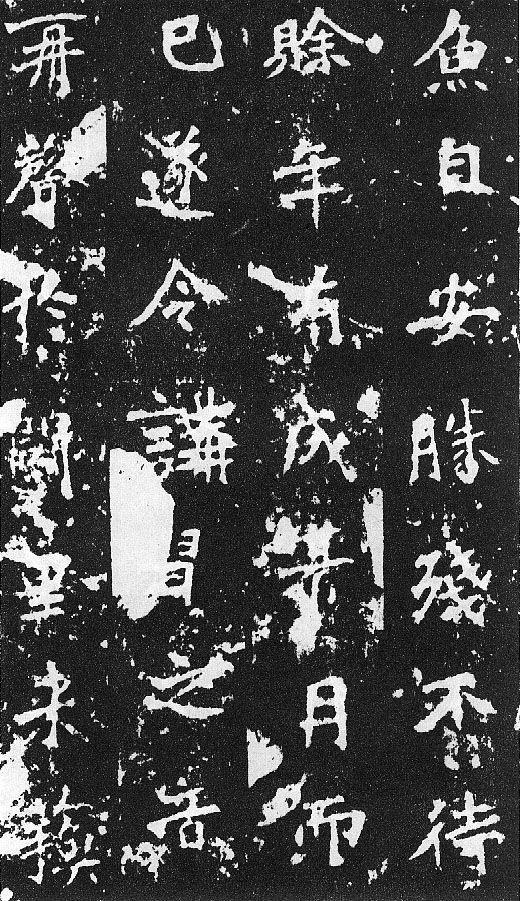 魚自安勝殘不待
賒年有成朞月而
已遂令講習之音
再聲於闕里來蘇